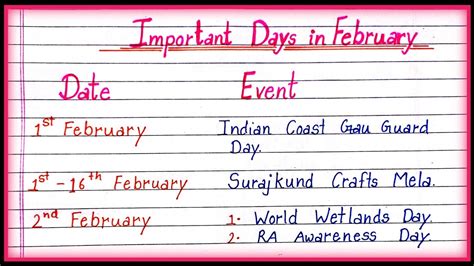 Important Days in February
Date Event
1st February Indian Coast Gau Guard
Day.
1st-16th February Surajkund Crafts Mela.
2nd February 1. World Wetlands Day.
2. RA Awareness Day.